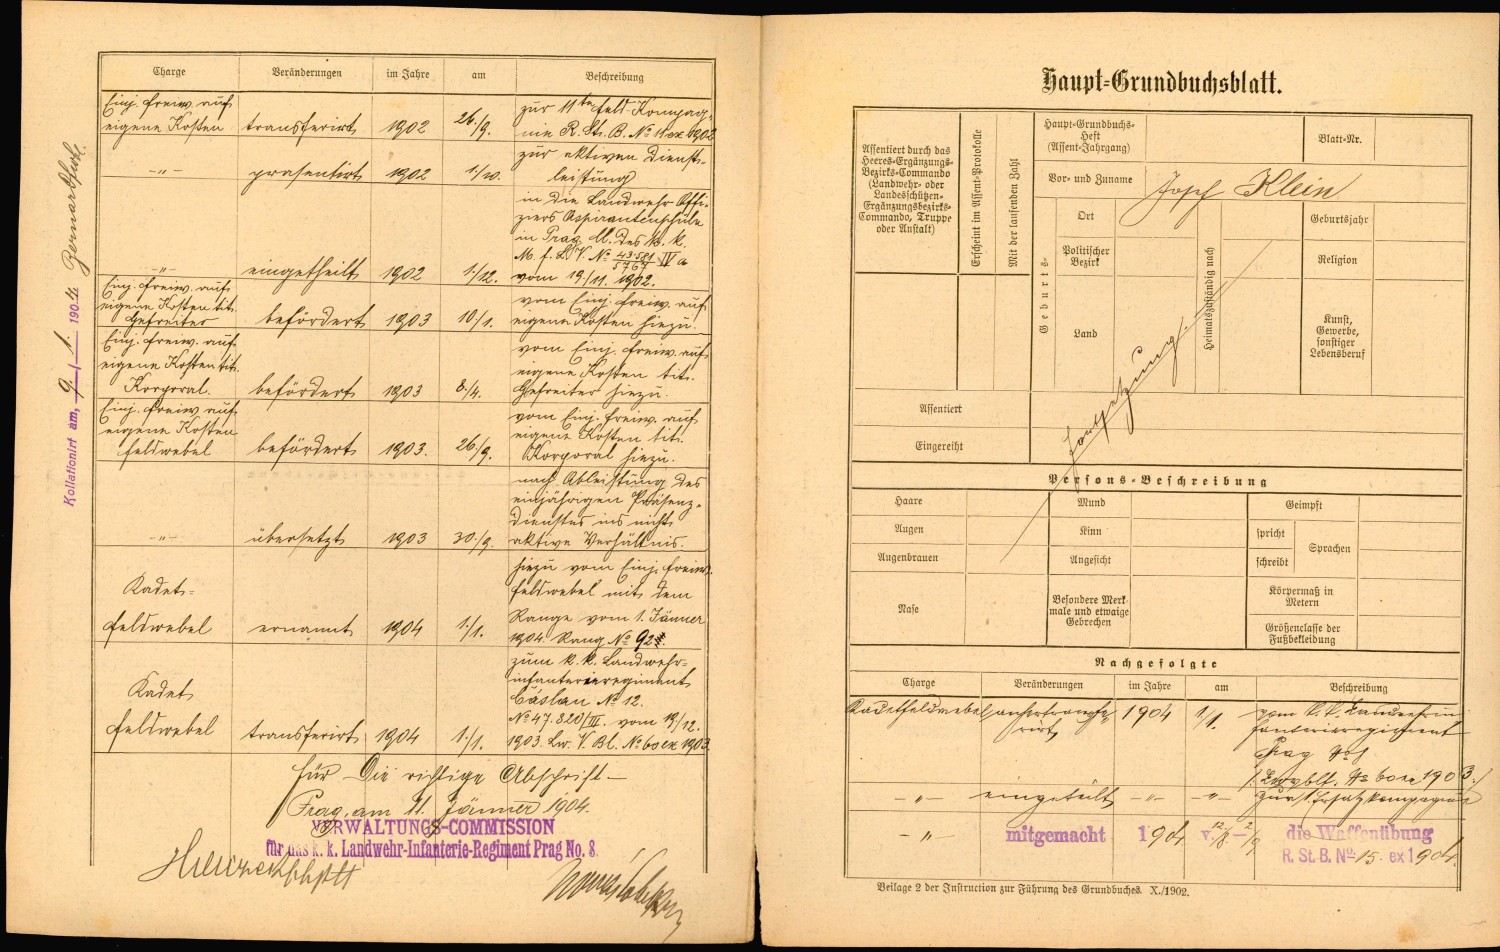 Charge Veränderungen im Jahre am Beschreibung
Einj. freiw. auf
eigene Kosten transferirt 1902 26./9. zur 11ten Feld-Kompag-
nie R. St. B. No 11 ex 1902
-„- präsentirt 1902 1./10. zur aktiven Dienst-
leistung
-„- eingetheilt 1902 1./12. in die Landwehr Offi-
ziers Aspirantenschule
in Prag. des k. k.
M. f. L. V. No 43.581/5767 IV a
vom 19./11. 1902.
Einj. freiw. auf
eigene Kosten tit.
Gefreiter befördert 1903 10/1. vom Einj. freiw. auf
eigene Kosten hiezu.
Einj. freiw. auf
eigene Kosten tit.
Korporal. befördert 1903 8./4. vom Einj. freiw. auf
eigene Kosten tit.
Gefreiter hiezu.
Einj. freiw. auf
eigene Kosten
Feldwebel befördert 1903. 26./9. vom Einj. freiw. auf
eigene Kosten tit.
Korporal hiezu.
-„- übersetzt 1903 30./9. nach Ableistung des
einjährigen Präsenz-
dienstes ins nicht
aktive Verhältnis.
Kadet-
Feldwebel ernannt 1904 1./1. hiezu vom Einj. freiw.
Feldwebel mit dem
Range vom 1. Jänner
1904 Rang No 92
Kadet
Feldwebel transferirt 1904 1./1. zum k. k. Landwehr-
infanterieregiment
Cáslau No 12.
No 47.820/III. vom 19/12.
1903. Lw. V. Bl. No 60 ex 1903.
Für die richtige Abschrift
Prag, am 11 Jänner 1904.
VERWALTUNGS-COMMISSION
für das k. k. Landwehr-Infanterie-Regiment Prag No. 8.
Kollationirt am, 9/1. 1904
Haupt-Grundbuchsblatt.
Assentiert durch das
Heeres-Ergänzungs-
Bezirks-Commando
(Landwehr- oder
Landesschützen-
Ergänzungsbezirks-
Commando, Truppe
oder Anstalt)
Erscheint im Assent-Protokolle
Mit der laufenden Zahl
Haupt-Grundbuchs-
Heft
(Assent-Jahrgang)
Blatt-Nr.
Vor- und Zuname Josef Klein
Geburts-
Ort
Politischer
Bezirk
Land
Heimatszuständig nach
Geburtsjahr
Religion
Kunst,
Gewerbe,
sonstiger
Lebensberuf
Fortsetzung.
Assentiert
Eingereiht
Persons-Beschreibung
Haare Mund Geimpft
Augen Kinn spricht Sprachen
Augenbrauen Angesicht schreibt
Nase Besondere Merk-
male und etwaige
Gebrechen
Körpermaß in
Metern
Größenclasse der
Fußbekleidung
Nachgefolgte
Charge Veränderungen im Jahre am Beschreibung
Kadetfeldwebel anhertransfe
rirt 1904 1/1. vom k. k. Landwehrin
fanterieregiment
Prag No 8
No 60 ex 1903.
-„- eingeteilt -„- -„- zur Ersatzkompagnie
-„- mitgemacht 1904 v. 12/8. – 2/9 die Waffenübung
R. St. B. No. 15. ex 1904.
Beilage 2 der Instruction zur Führung des Grundbuches. X./1902.